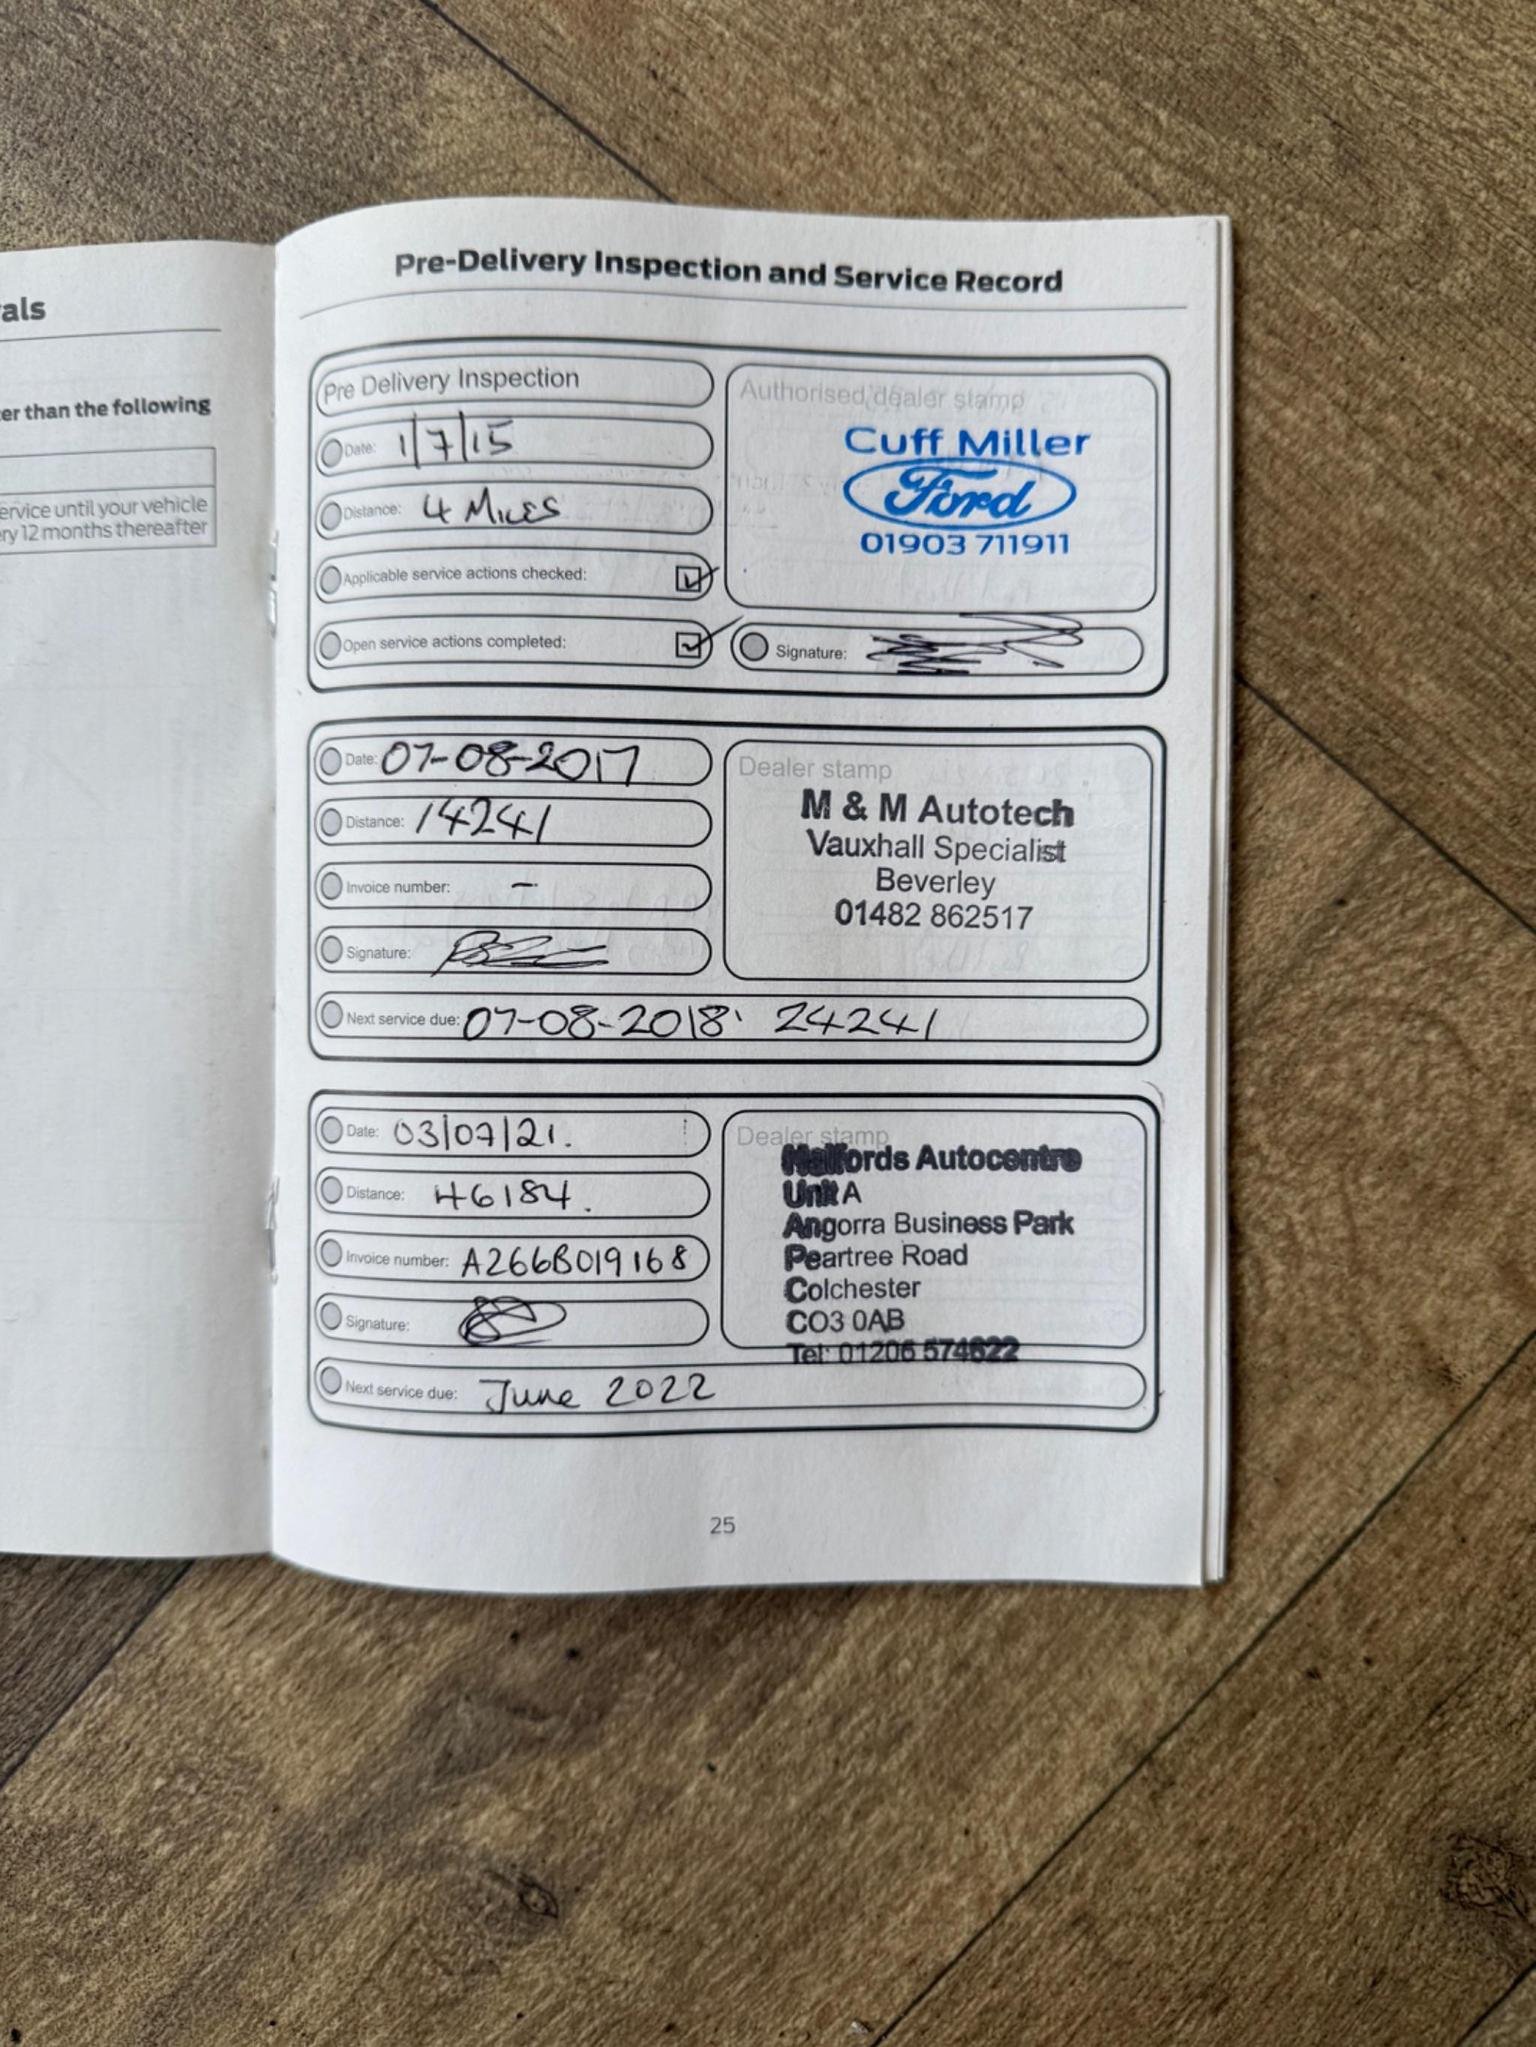 als
er than the following
ervice until your vehicle
ry 12 months thereafter
Pre-Delivery Inspection and Service Record
Pre Delivery Inspection
Date: 1/7/15
Distance: 4 Miles
Applicable service actions checked:
Open service actions completed:
Authorised dealer stamp
Cuff Miller
Ford
01903 711911
Signature:
Date: 07-08-2017
Distance: 14241
Invoice number: -
Signature:
Next service due: 07-08-2018 24241
Dealer stamp
M & M Autotech
Vauxhall Specialist
Beverley
01482 862517
Date: 03/07/21.
Distance: 46184.
Invoice number: A266B019168
Signature:
Next service due: June 2022
Dealer stamp
Halfords Autocentre
Unit A
Angorra Business Park
Peartree Road
Colchester
CO3 0AB
Tel: 01206 574622
25